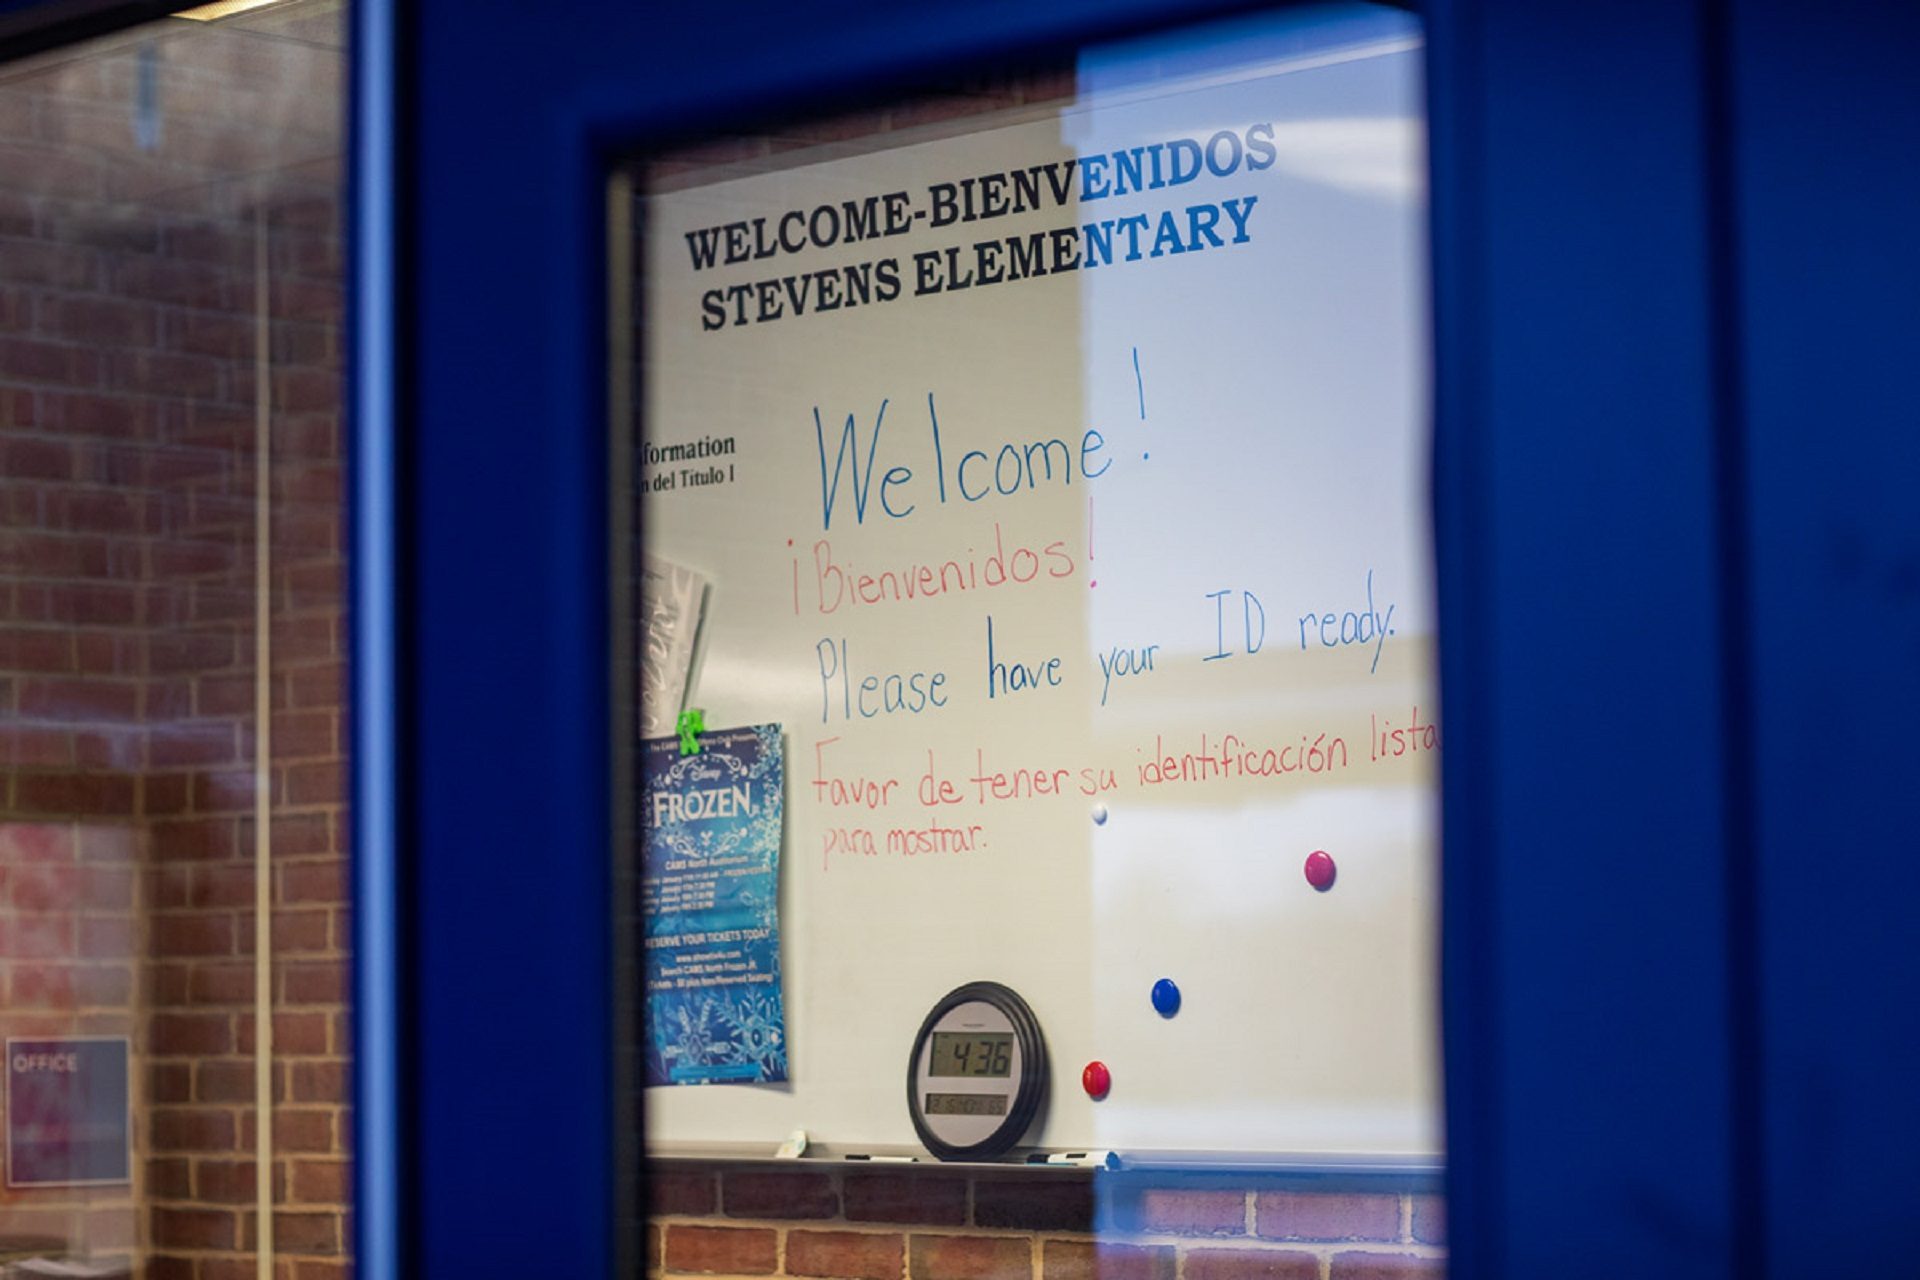 WELCOME-BIENVENIDOS
STEVENS ELEMENTARY
formation
del Titulo I
Welcome!
¡Bienvenidos!
Please have your ID ready.
Favor de tener su identificación lista
para mostrar.
Disney
FROZEN
CAMS North Auditorium
RESERVE YOUR TICKETS TODAY
Search CAMS North Frozen Jr.
4:36
OFFICE